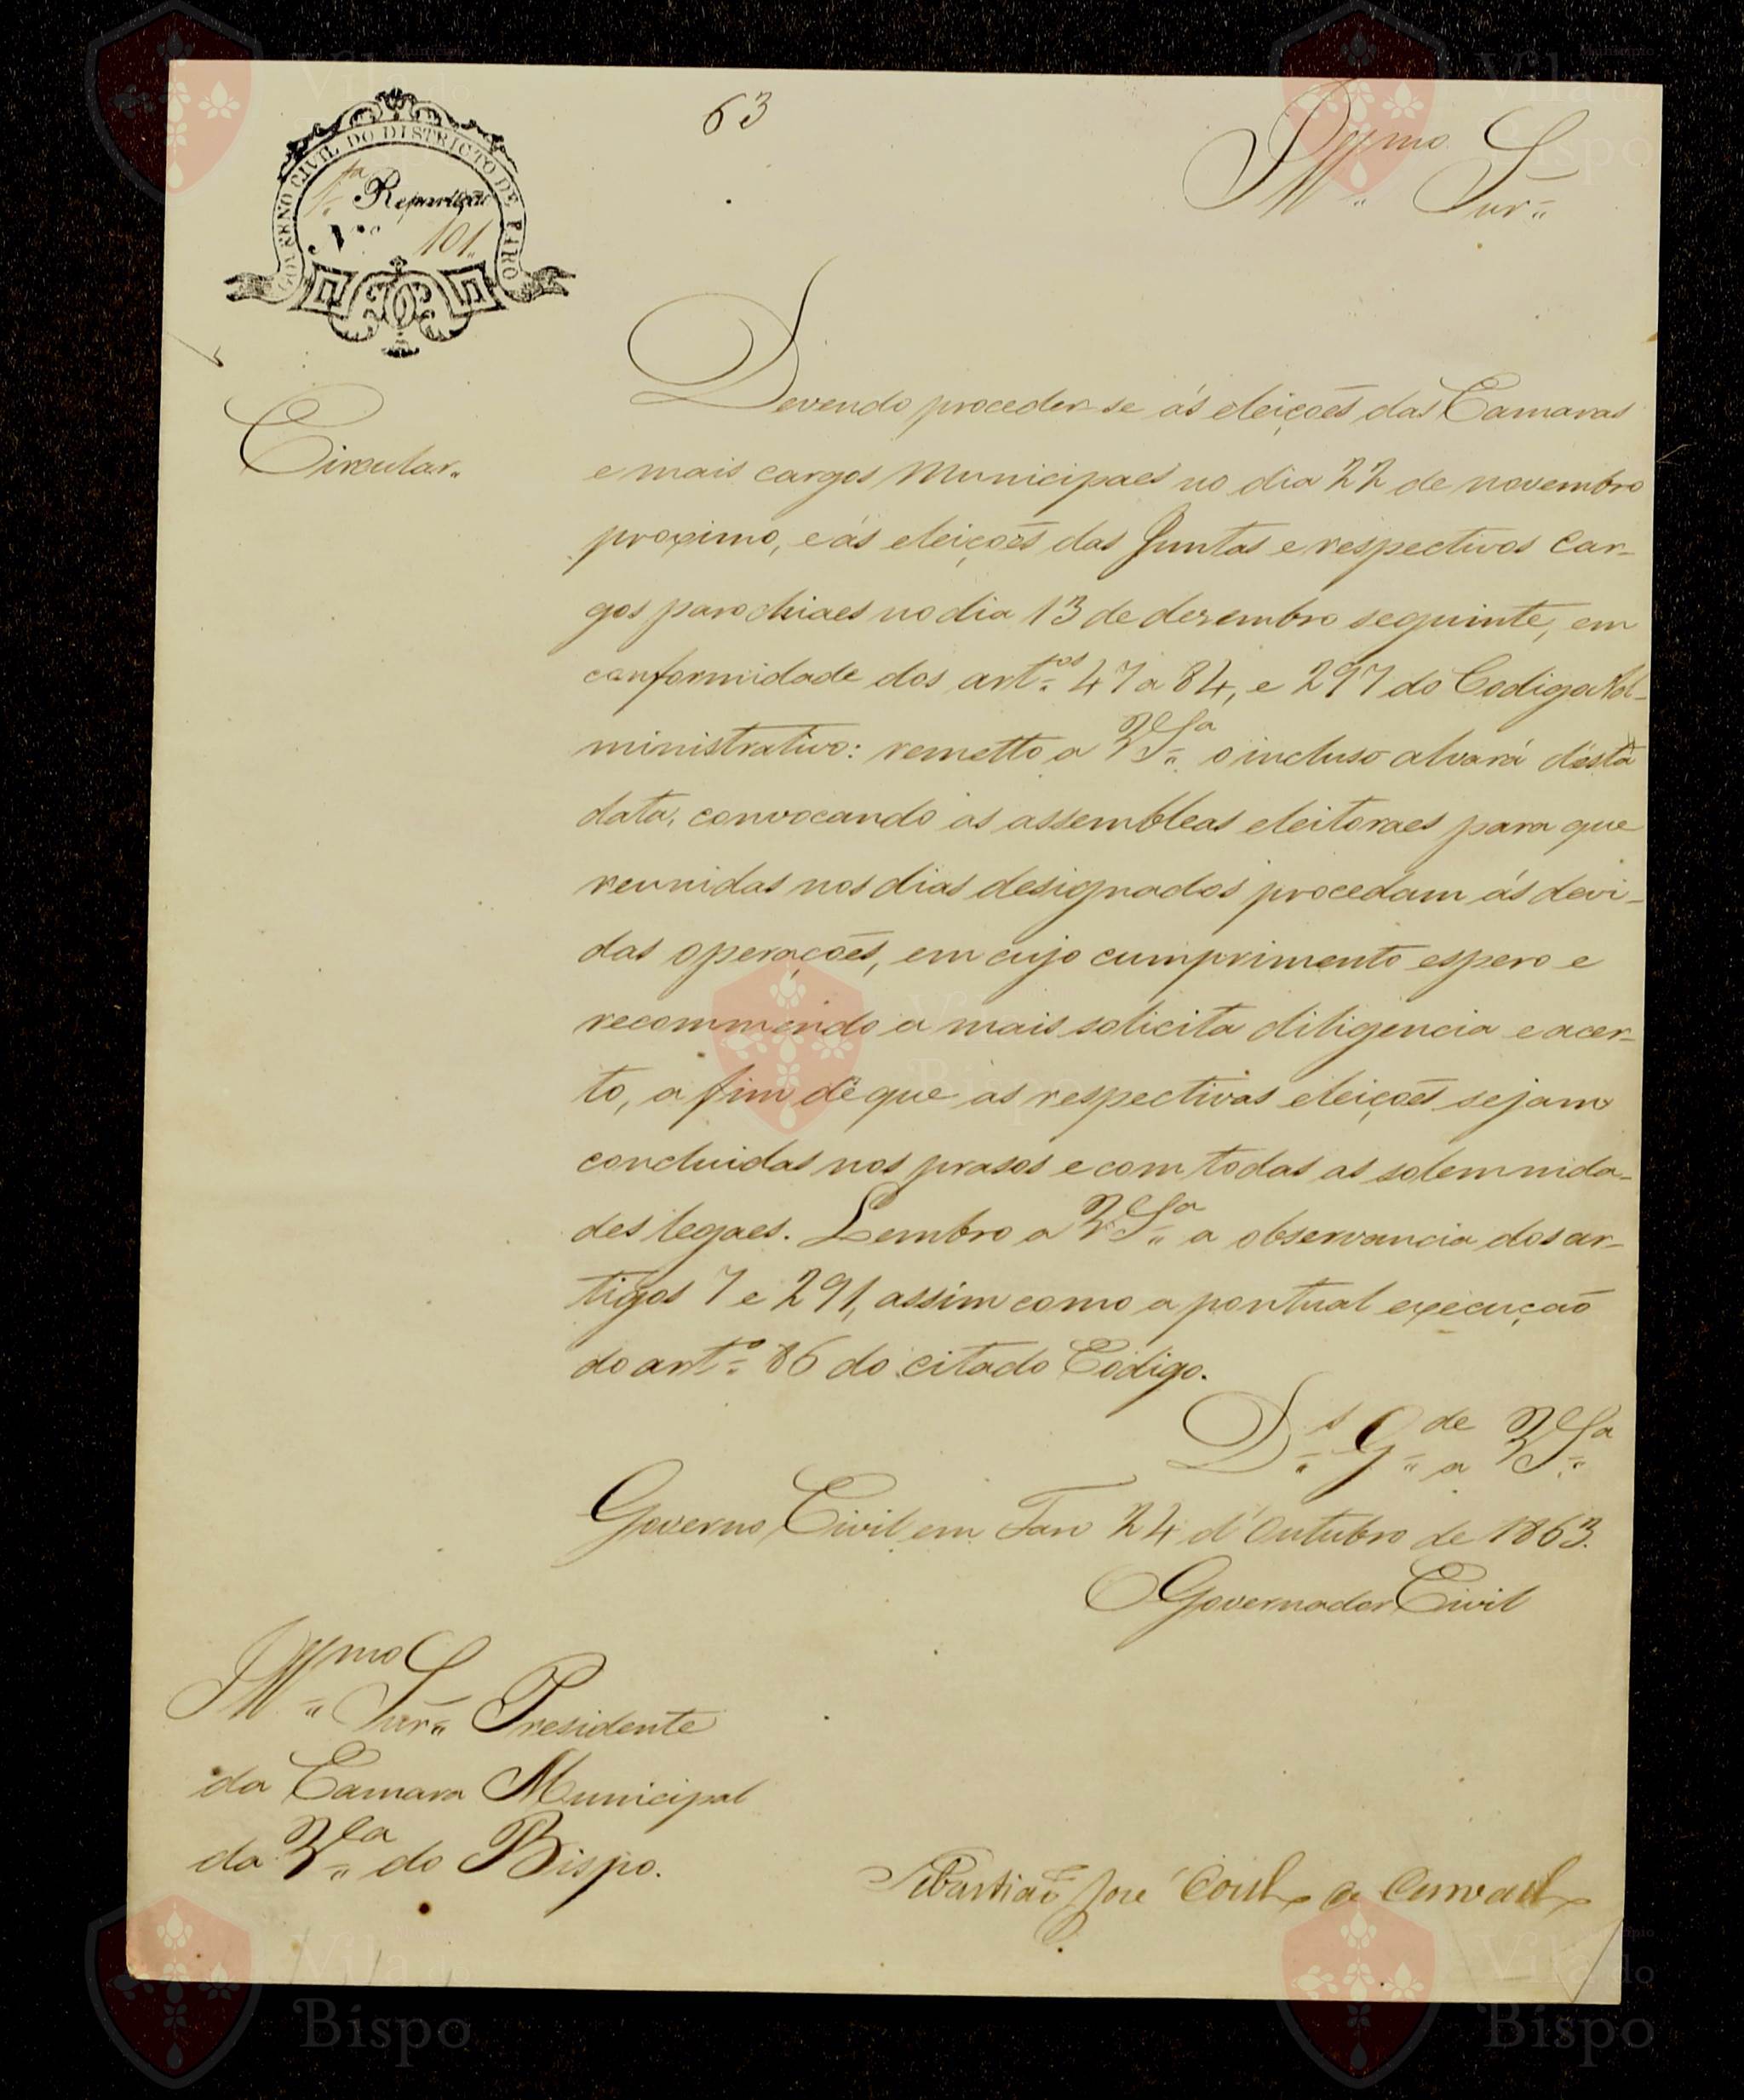 63
GOVERNO CIVIL DO DISTRICTO DE FARO
1.ª Repartição
N.º 101
Ill.mo Snr.
Circular.
Devendo proceder-se ás eleições das Camaras
e mais cargos Municipaes no dia 22 de novembro
proximo, e ás eleições das Juntas e respectivos car-
gos parochiaes no dia 13 de dezembro seguinte, em
conformidade dos art.os 47 a 84, e 297 do Codigo Ad-
ministrativo: remetto a V. S.a o incluso alvará d'esta
data, convocando as assembleas eleitoraes para que
reunidas nos dias designados procedam ás devi-
das operações, em cujo cumprimento espero e
recommendo a mais solicita diligencia e acer-
to, a fim de que as respectivas eleições sejam
concluidas nos prasos e com todas as solemnida-
des legaes. Lembro a V. S.a a observancia dos ar-
tigos 7 e 291, assim como a pontual execução
do art.o 86 do citado Codigo.
D.s G.de a V. S.a
Governo Civil em Faro 24 d'Outubro de 1863.
O Governador Civil
Ill.mo Snr. Presidente
da Camara Municipal
da V.la do Bispo.
Sebastião José Coelho de Carvalho
Município
Vila do
Bispo